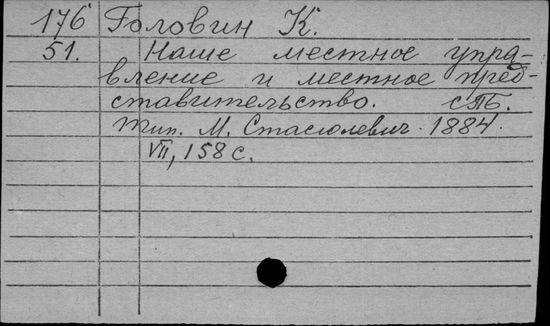 176 Головин К.
51. Наше местное упра-
вление и местное пред-
ставительство. СПб.
Тип. М. Стасюлевич. 1884.
VII, 158 с.